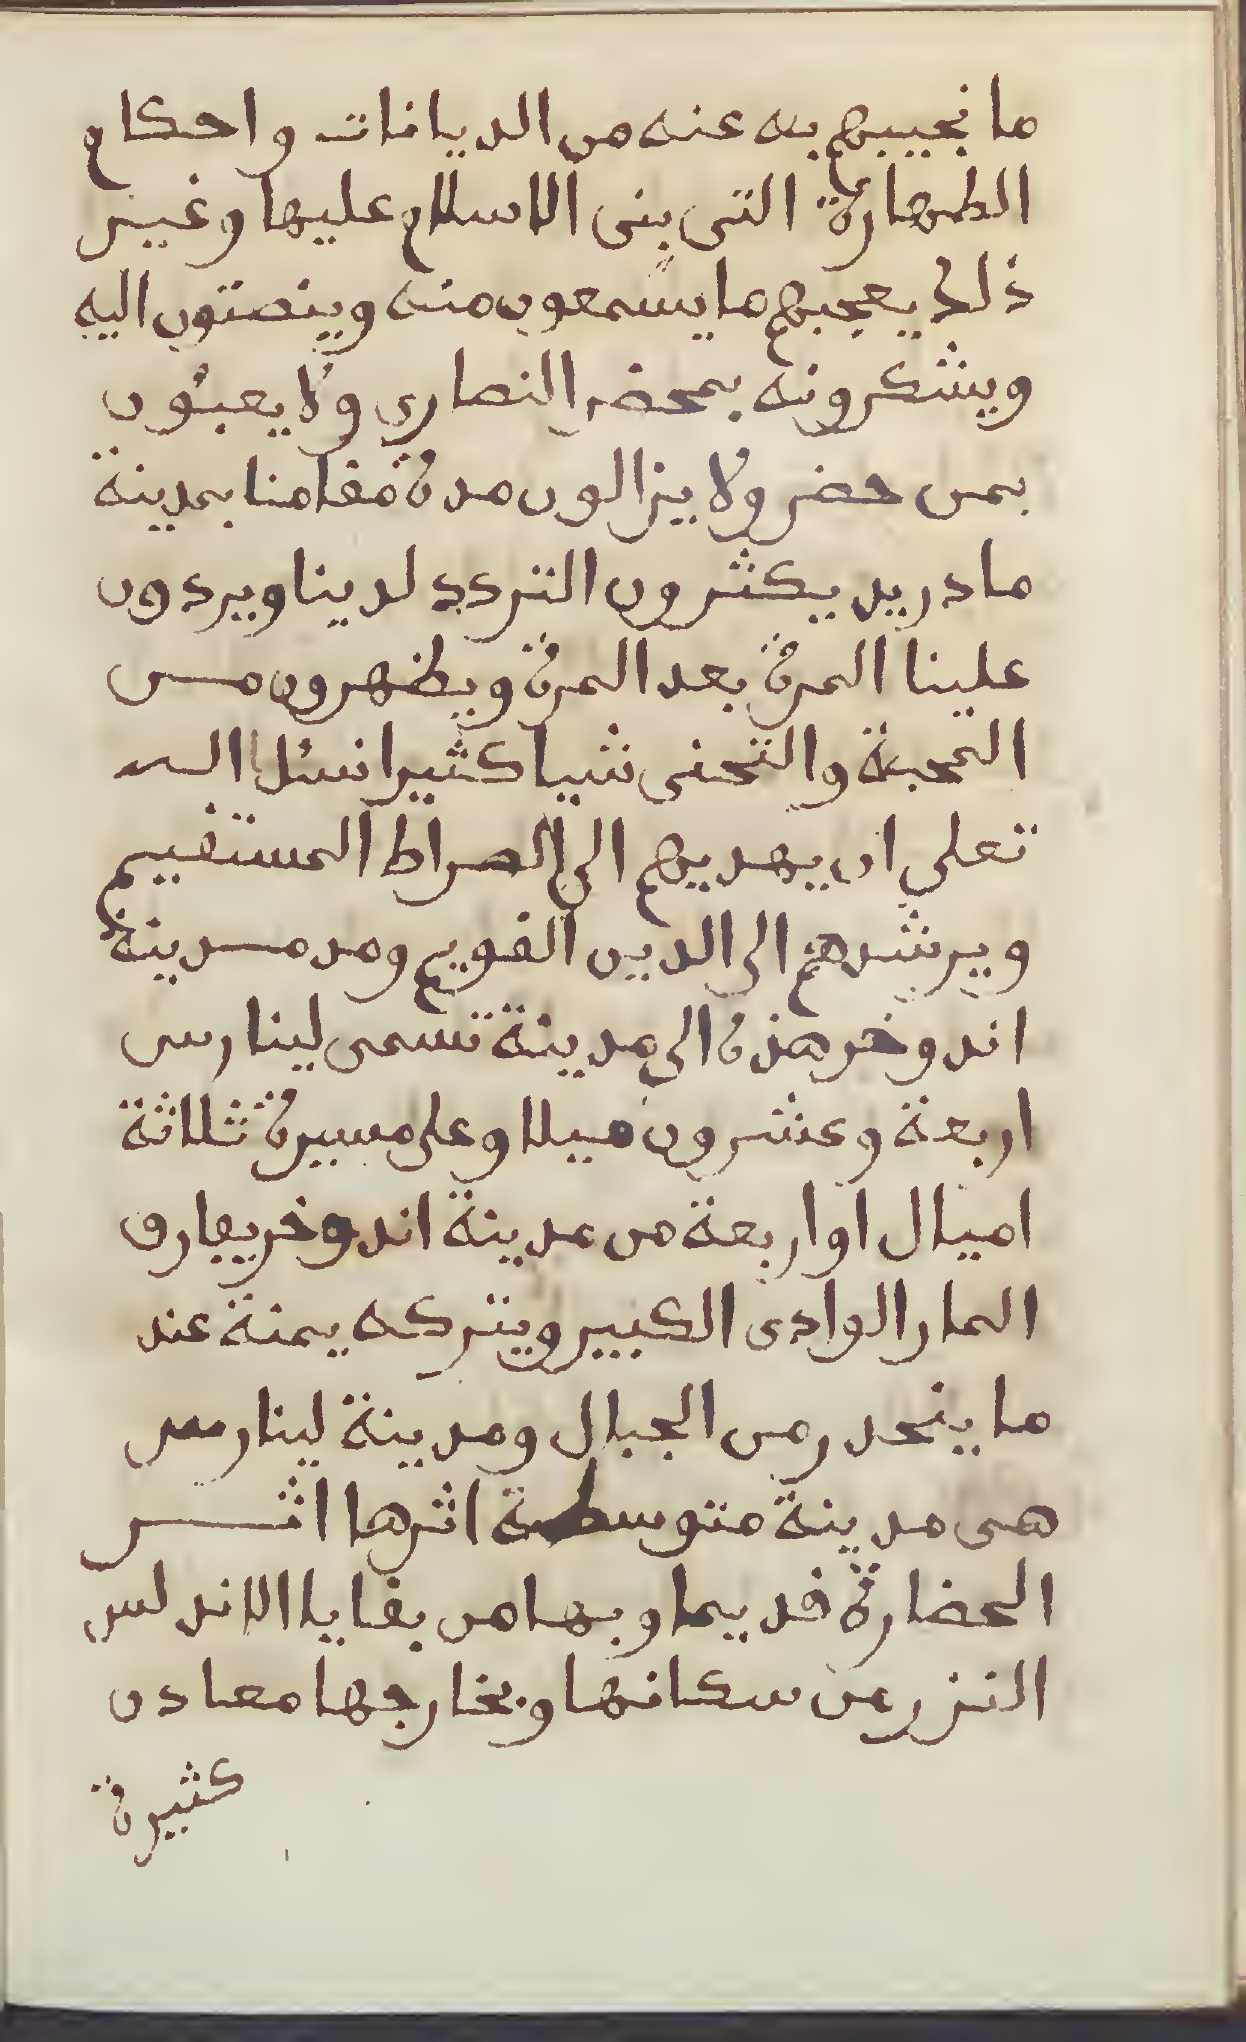 ما نجيبهم به عنه من الديانات واحكام
الطهارة التى بنى الاسلام عليها وغير
ذلك يعجبهم ما يسمعون منه وينصتون اليه
ويشكرونه بمحضر النصارى ولا يعبئون
بمن حضر ولا يزالون مدة مقامنا بمدينة
مادريد يكثرون التردد لدينا ويردون
علينا المرة بعد المرة ويظهرون من
المحبة والتحنى شيا كثيرا نسئل الله
تعلى ان يهديهم الى الصراط المستقيم
ويرشدهم الى الدين القويم ومد مدينة
اندوخر هذه الى مدينة تسمى لينارس
اربعة وعشرون ميلا وعلى مسيرة ثلاثة
اميال او اربعة من مدينة اندوخر يفارق
المار الوادى الكبير ويتركه يمنة عند
ما ينحدر من الجبال ومدينة لينارس
هى مدينة متوسطة اثرها اثر
الحضارة قديما وبها من بقايا الاندلس
النزر من سكانها وبخارجها معادن
كثيرة